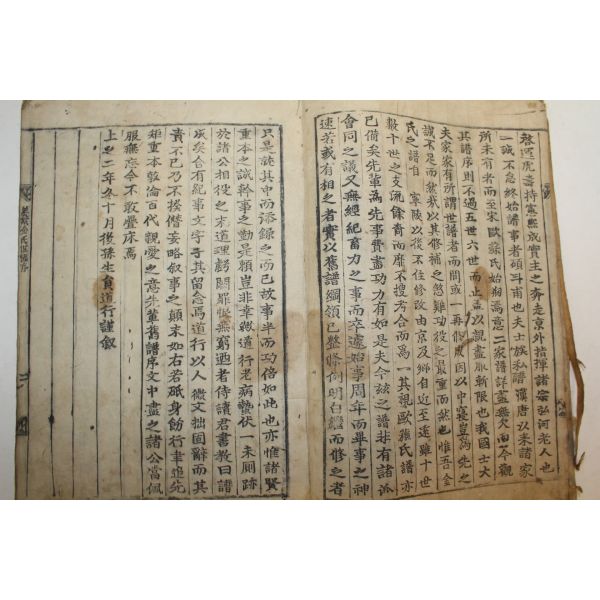 啓選虎壽持憲熙成實主之奔走京外指揮諸宗弘河老人也
一誠不怠終始譜事者碩斗甫也夫士族私譜漢唐以來諸家
所未有者而至宋歐蘇氏始粗爲意二家譜詳盡無欠而今觀
其譜序則不過五世六世而止盖以親盡服斬限也我國士大
夫家家有所謂世譜者而間或一再修成因以中寢豈爲先之
誠不足而然哉以其修補之怠難功役之最重而然也惟吾金
氏之譜自 寧陵以後不住修改由京及鄉自近至遠雖十世
數十世之支流餘裔而靡不搜考合而爲一其視歐蘇氏譜亦
已備矣先輩爲先事費盡功力有如是夫今玆之譜非有諸派
會同之議又無經紀畜力之事而卒遽始事周年而畢事之神
速若或有相之者實以舊譜綱領已整條例明白繼而修之者
只是就其中而添錄之而已故事半而功倍如此也亦惟諸賢
重本之誠幹事之勤是賴豈非幸歟道行老病蟄伏一未厠跡
於諸公相役之末道理虧闕罪悚無窮迺者侍讀君書敎曰譜
成矣合有紀事文字子其留念焉道行以人微文拙固辭而其
責不已乃不揆僭妄略叙事之顚末如右若砥身飭行聿追先
矩重本敦倫百代親愛之意先輩舊譜序文中盡之諸公當佩
服無忘余不敢疊床焉
上之二年冬十月後孫生員道行謹叙